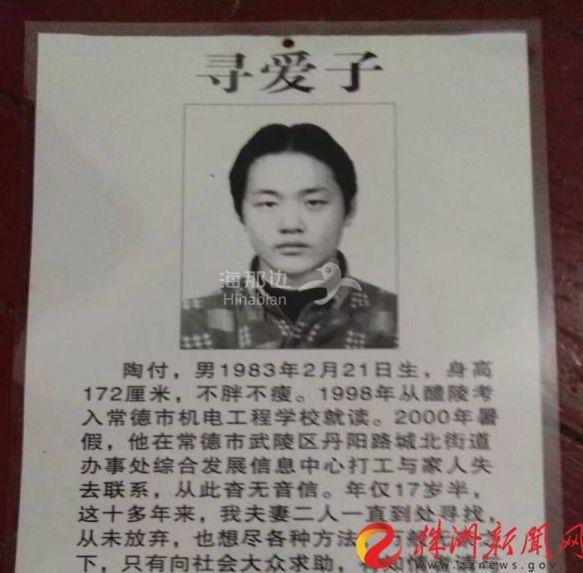 寻爱子
海那边
Hinabian
陶付，男1983年2月21日生，身高
172厘米，不胖不瘦。1998年从醴陵考
入常德市机电工程学校就读。2000年暑
假，他在常德市武陵区丹阳路城北街道
办事处综合发展信息中心打工与家人失
去联系，从此杳无音信。年仅17岁半，
这十多年来，我夫妻二人一直到处寻找，
从未放弃，也想尽各种方法
下，只有向社会大众求助，
株洲新闻网
www.zznews.gov.